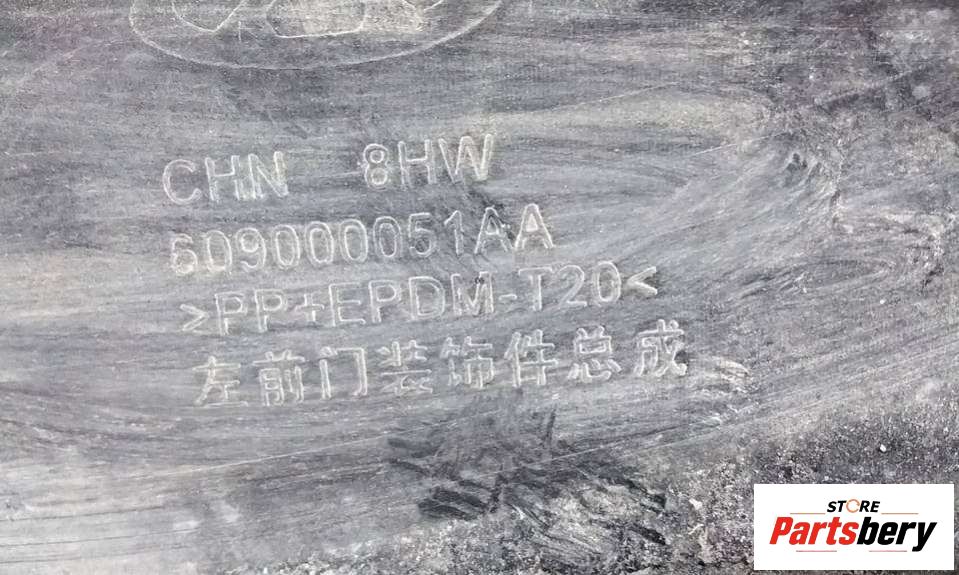 CHN 8HW
609000051AA
>PP+EPDM-T20<
左前门装饰件总成
STORE
Partsbery